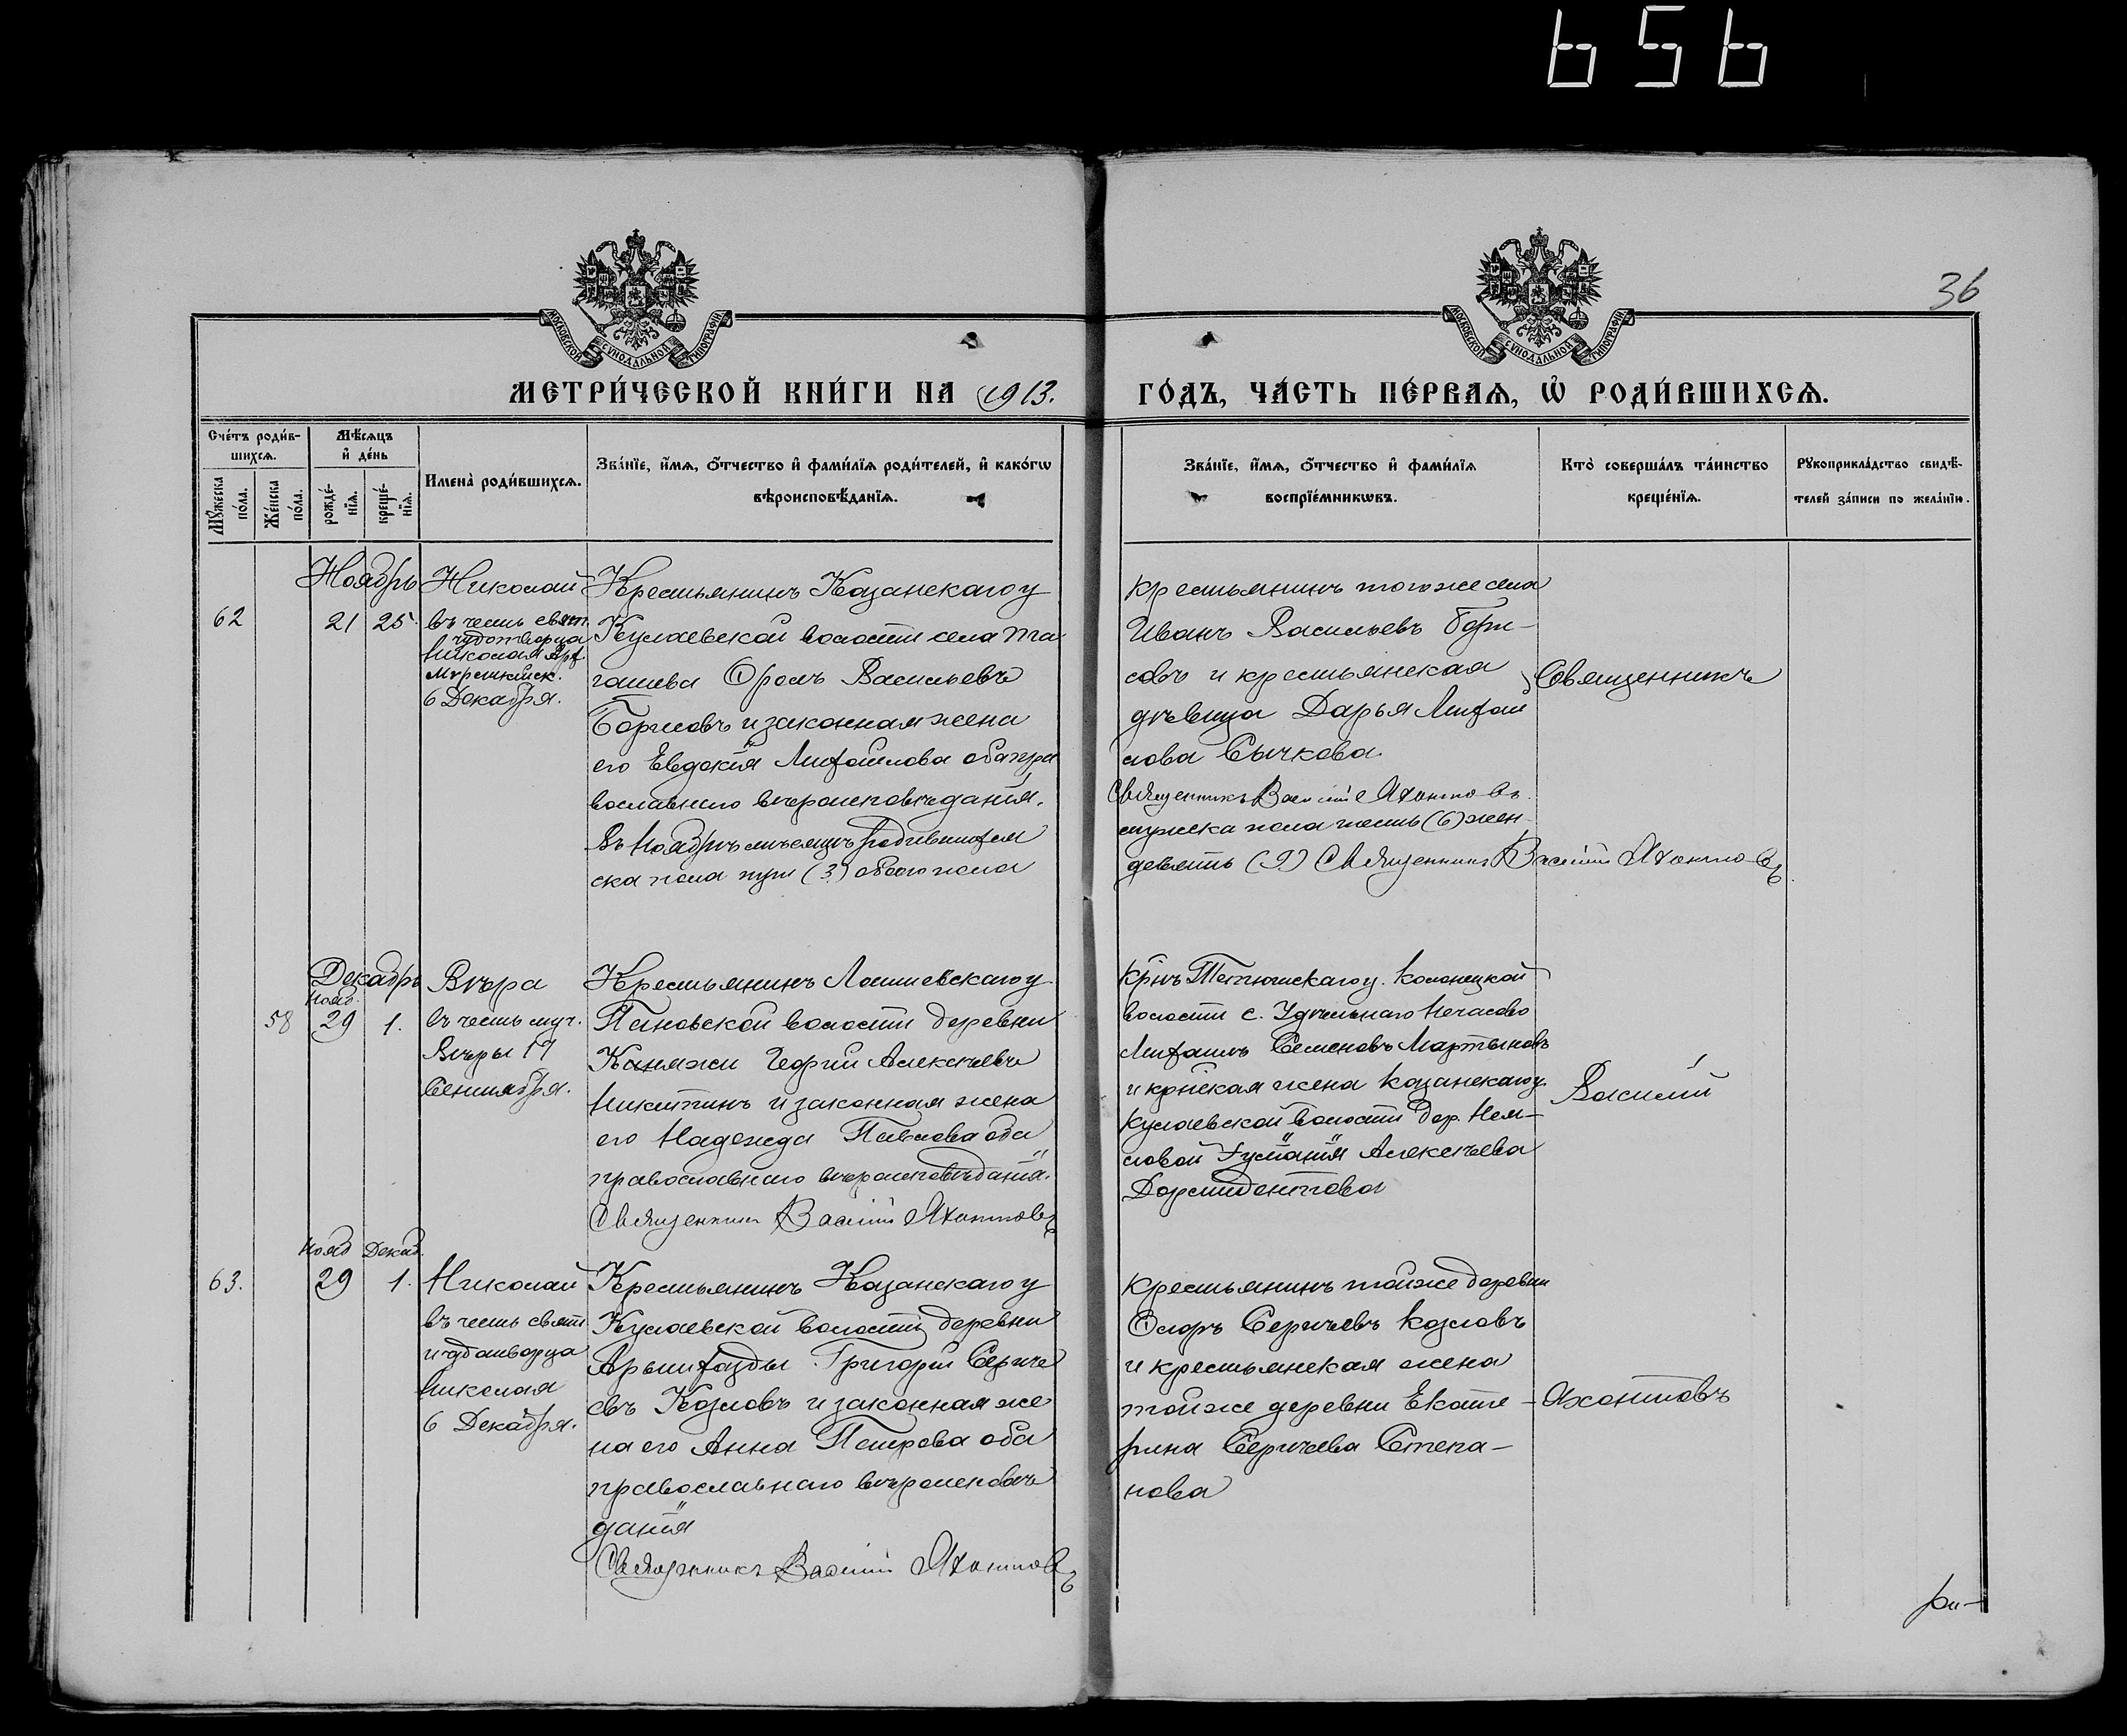 656
36
МОСКОВСКОЙ СѴНОДАЛЬНОЙ ТИПОГРАФІИ
МОСКОВСКОЙ СѴНОДАЛЬНОЙ ТИПОГРАФІИ
МЕТРИ́ЧЕСКОЙ КНИ́ГИ НА 1913.
ГО́ДЪ, ЧА́СТЬ ПЕ́РВАѦ, Ѡ҆ РОДИ́ВШИХСѦ.
Сче́тъ роди́в-
шихсѧ.
Мꙋ́жеска по́ла.
Же́нска по́ла.
Мѣ́сѧцъ
и҆ де́нь
рожде́-
нїѧ.
креще́-
нїѧ.
И҆мена̀ роди́вшихсѧ.
Зва́нїе, и҆́мѧ, ѻ҆́тчество и҆ фами́лїѧ роди́телей, и҆ како́гѡ
вѣроисповѣ́данїѧ.
Зва́нїе, и҆́мѧ, ѻ҆́тчество и҆ фами́лїѧ
воспрїе́мникѡвъ.
Кто̀ соверша́лъ та́инство
креще́нїѧ.
Рꙋкоприкла́дство свидѣ́-
телей за́писи по жела́нїю.
Ноябрь
62
21 25.
Николай
въ честь свят.
чудотворца
Николая Арх.
Мѵрликійск.
6 Декабря.
Крестьянинъ Казанскаго у
Кулаевской волости села Та
гашева Фролъ Васильевъ
Борисовъ и законная жена
его Евдокія Михайлова оба пра
вославнаго вѣроисповѣданія.
Въ Ноябрѣ мѣсяцѣ родившихся
ска пола три (3) обоего пола
крестьянинъ того же села
Иванъ Васильевъ Бори-
совъ и крестьянская
дѣвица Дарья Михай
лова Сычкова.
Священникъ Василій Яхонтовъ.
мужеска пола шесть (6) жен-
девять (9) Священникъ Василій Яхонтовъ
Священникъ
Декабрь
Нояб.
58
29 1.
Вѣра
въ честь муч.
Вѣры 17
Сентября.
Крестьянинъ Лаишевскаго у
Пановской волости деревни
Георгій Алексѣевъ
Никитинъ и законная жена
его Надежда Павлова оба
православнаго вѣроисповѣданія.
Священникъ Василій Яхонтовъ
Крнъ Тетюшскаго у.
волости с. Удѣльнаго Нечасово
Михаилъ Семеновъ Мартыновъ
и крнская жена Казанскаго у.
Кулаевской волости дер.
Іуліанія Алексѣева
Дормидонтова
Василій
Нояб Декаб.
63.
29 1.
Николай
въ честь свят
чудотворца
Николая
6 Декабря.
Крестьянинъ Казанскаго у
Кулаевской волости деревни
Арышхазды Григорій Сергѣе
въ Козловъ и законная же
на его Анна Петрова оба
православнаго вѣроисповѣ
данія
Священникъ Василій Яхонтовъ
крестьянинъ той же деревни
Сергѣевъ Козловъ
и крестьянская жена
той же деревни Екате-
рина Сергѣева Степа-
нова
Яхонтовъ
ри-